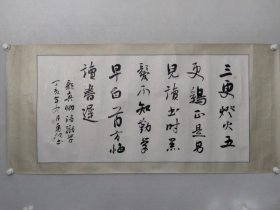 三更燈火五
更鷄正是男
兒讀書時黑
髮不知勤學
早白首方悔
讀書遲
顏真卿詩勸學